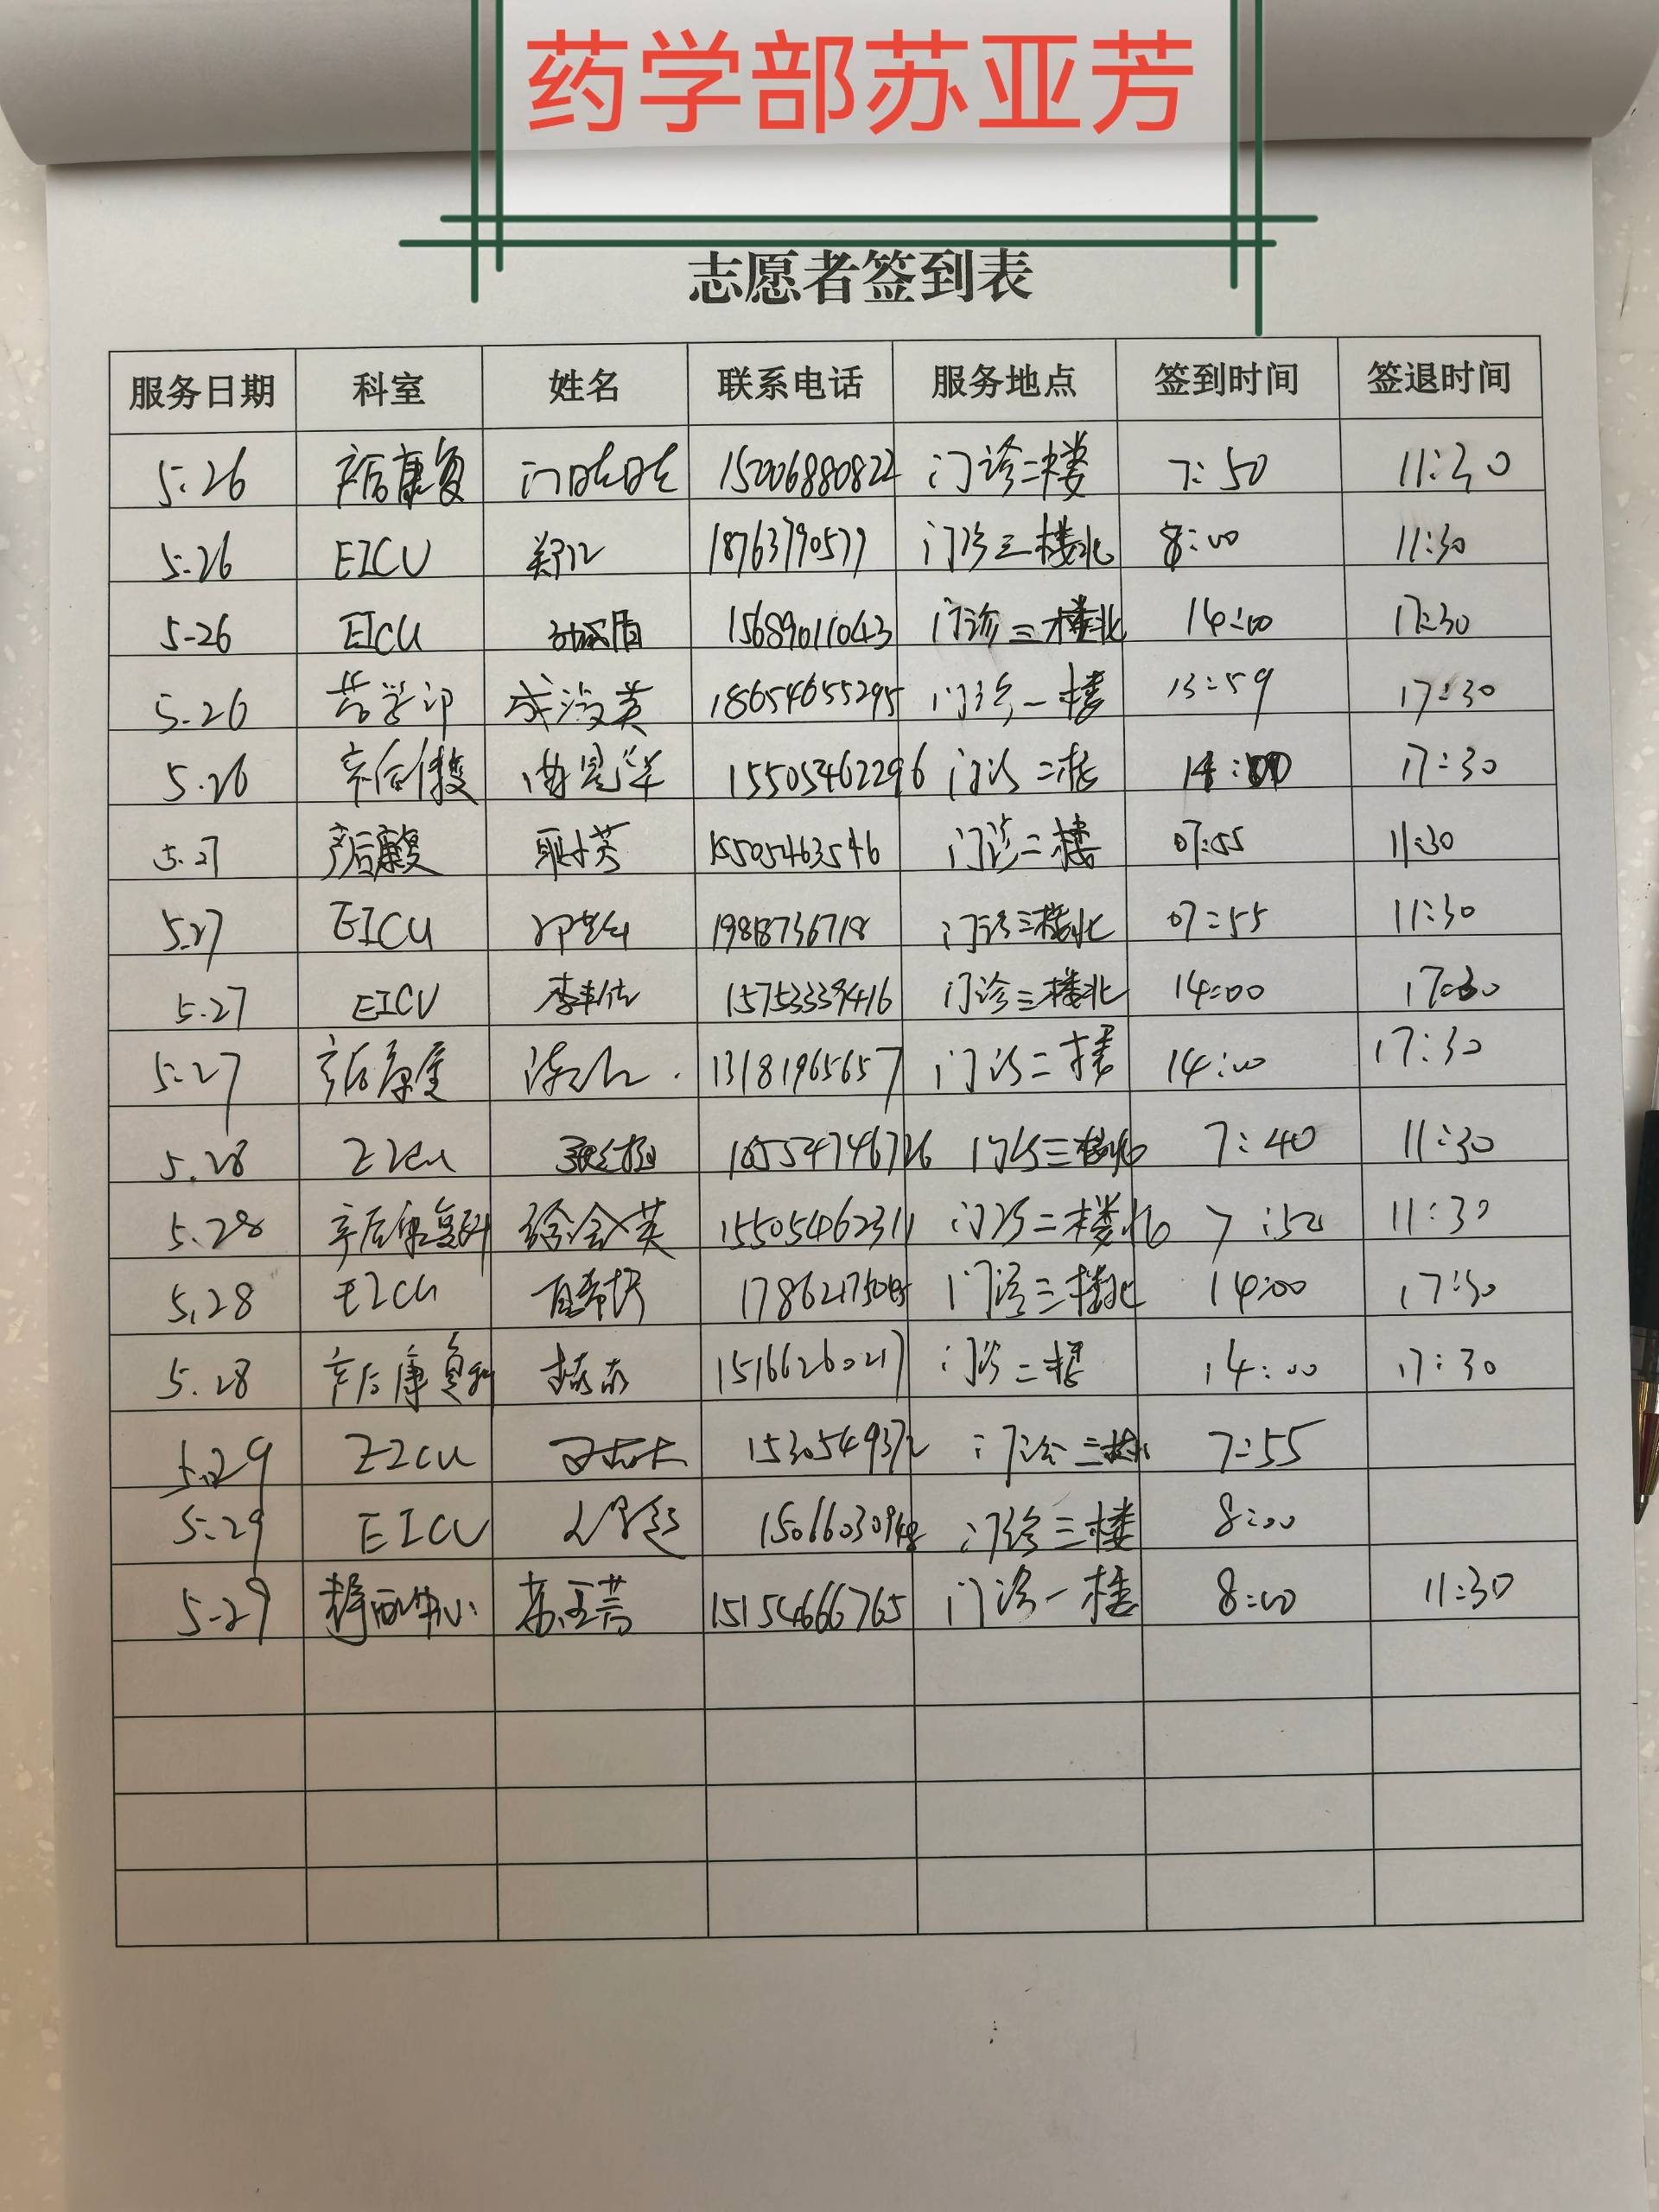 药学部苏亚芳
志愿者签到表
服务日期 科室 姓名 联系电话 服务地点 签到时间 签退时间
5.26 产后康复 门晓晓 15006880822 门诊二楼 7:50 11:30
5.26 EICU 18763790577 门诊三楼北 8:00 11:30
5.26 EICU 15689011043 门诊三楼北 14:00 17:30
5.26 药学部 18654655295 门诊一楼 13:59 17:30
5.26 产后康复 15505462296 门诊二楼 14:00 17:30
5.27 产后康复 耿小芳 15505463546 门诊二楼 07:55 11:30
5.27 EICU 门诊三楼北 07:55 11:30
5.27 EICU 15753339416 门诊三楼北 14:00 17:30
5.27 产后康复 13181965657 门诊二楼 14:00 17:30
5.28 EICU 18554746726 门诊三楼北 7:40 11:30
5.28 产后康复科 徐会英 15505462311 门诊二楼北 7:50 11:30
5.28 EICU 门诊三楼北 14:00 17:30
5.28 产后康复科 15166260217 门诊二楼 14:00 17:30
5.29 EICU 门诊三楼北 7:55
5.29 EICU 门诊三楼 8:00
5.29 静配中心 苏亚芳 15154666765 门诊一楼 8:00 11:30